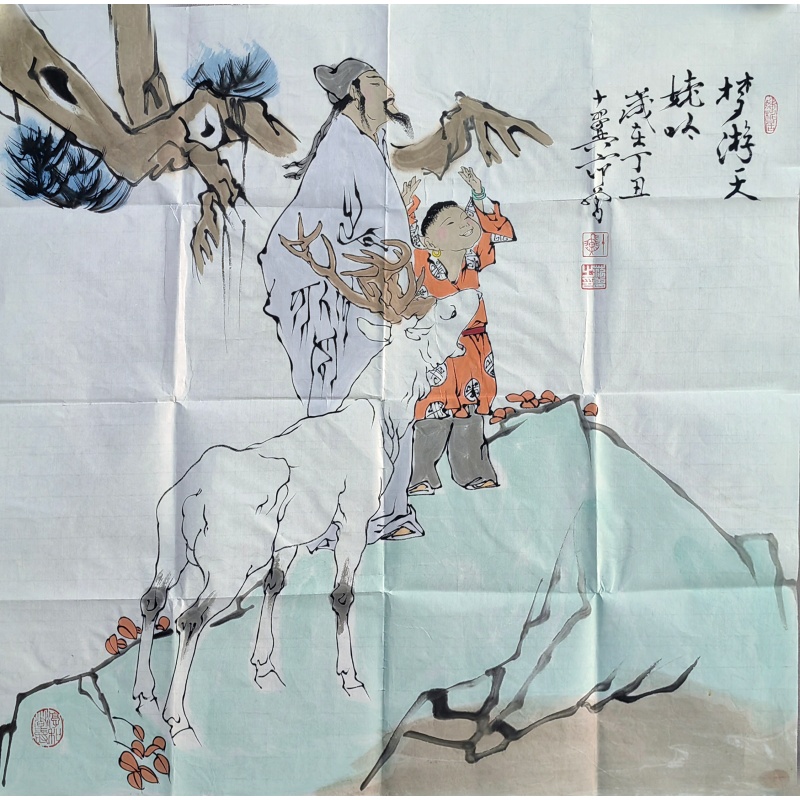 梦游天
姥吟
岁在丁丑
十翼范曾